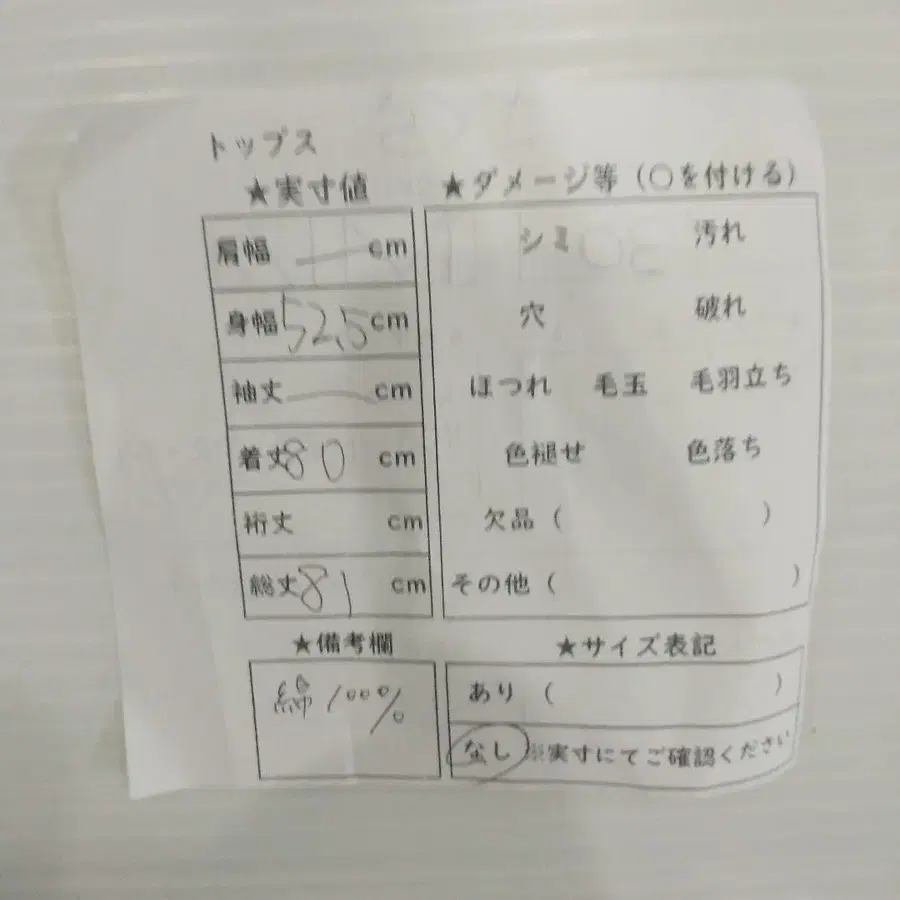 トップス
★実寸値
肩幅 — cm
身幅 52.5 cm
袖丈 — cm
着丈 80 cm
裄丈 cm
総丈 81 cm
★備考欄
綿100%
★ダメージ等（○を付ける）
シミ 汚れ
穴 破れ
ほつれ 毛玉 毛羽立ち
色褪せ 色落ち
欠品（ ）
その他（ ）
★サイズ表記
あり（ ）
なし ※実寸にてご確認ください